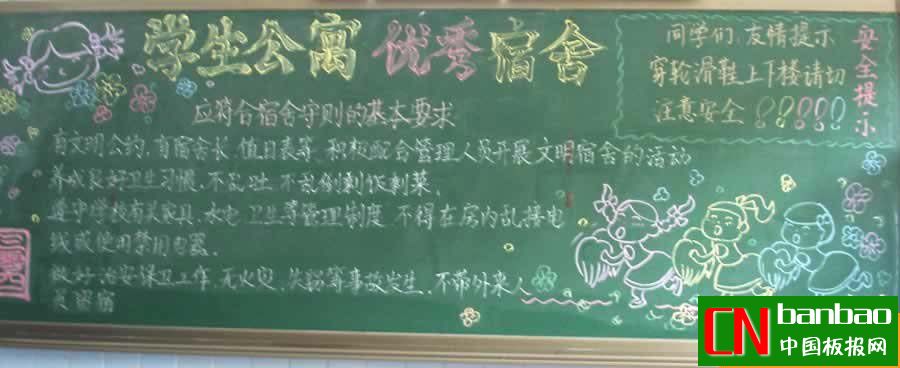 学生公寓 优秀宿舍
应符合宿舍守则的基本要求
有文明公约,有宿舍长,值日表等,积极配合管理人员开展文明宿舍的活动
养成良好卫生习惯,不乱吐,不乱倒剩饭剩菜。
遵守学校有关家具,水电,卫生等管理制度 不得在房内乱接电
线或使用禁用电器.
做好治安保卫工作,无火灾,失窃等事故发生,不带外来人
员留宿
同学们,友情提示
穿轮滑鞋上下楼请切
注意安全 !!!!!
安全提示
CN banbao
中国板报网